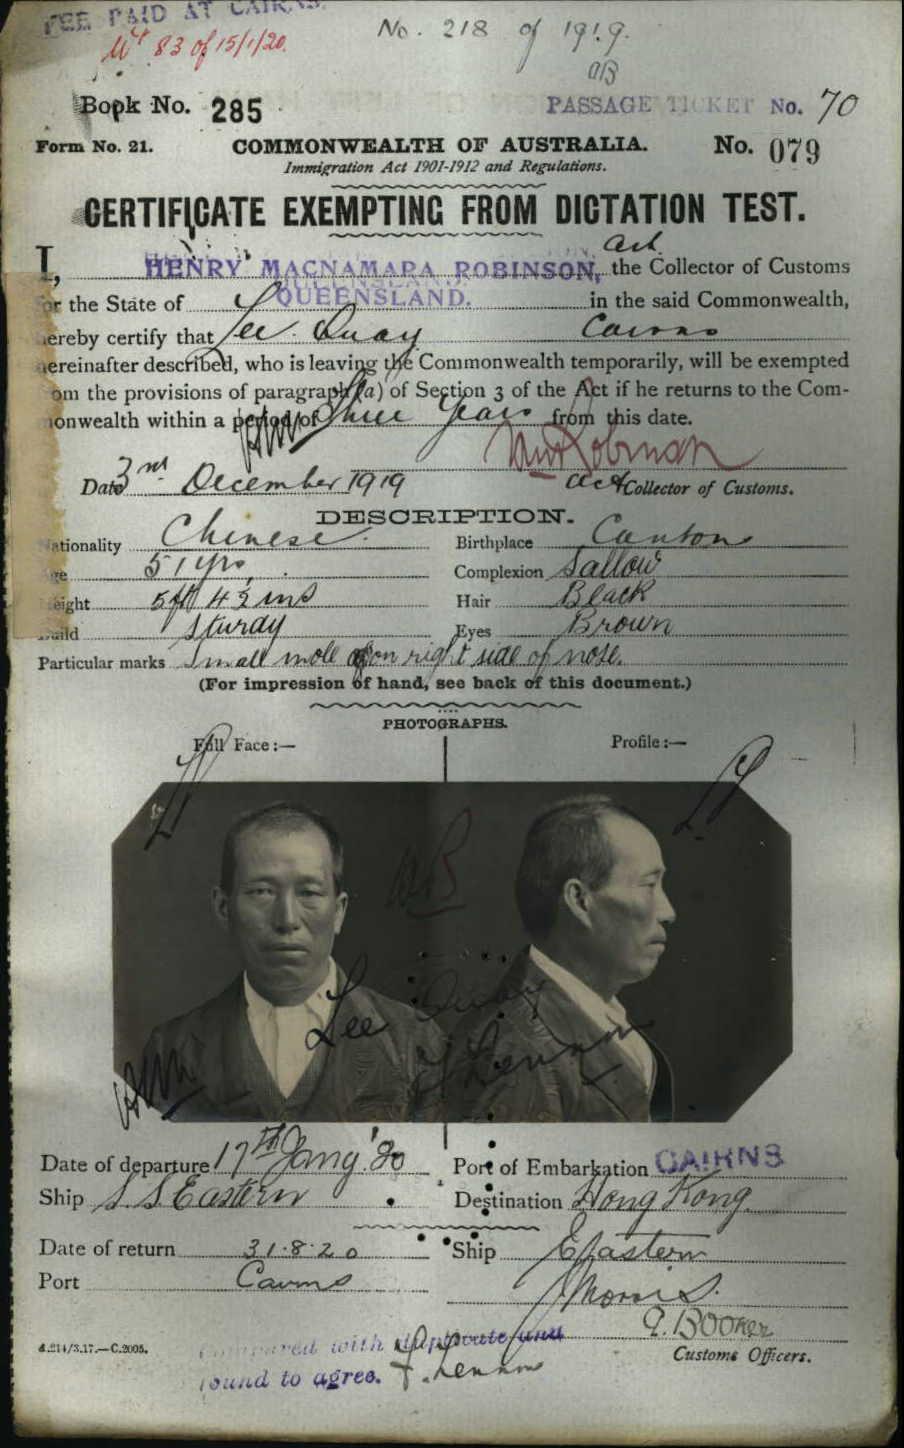 FEE PAID AT CAIRNS.
No. 218 of 1919.
No 83 of 15/1/20.
Book No. 285
PASSAGE TICKET No. 70
Form No. 21.
COMMONWEALTH OF AUSTRALIA.
No. 079
Immigration Act 1901-1912 and Regulations.
CERTIFICATE EXEMPTING FROM DICTATION TEST.
Act.
I, HENRY MACNAMARA ROBINSON, the Collector of Customs
for the State of QUEENSLAND. in the said Commonwealth,
hereby certify that Lee Quay Cairns
hereinafter described, who is leaving the Commonwealth temporarily, will be exempted
from the provisions of paragraph (a) of Section 3 of the Act if he returns to the Com-
monwealth within a period of Three Years from this date.
HM Robinson
Date 3rd December 1919 Act Collector of Customs.
DESCRIPTION.
Nationality Chinese. Birthplace Canton
Age 51 yrs. Complexion Sallow
Height 5ft 4½ ins Hair Black
Build Sturdy Eyes Brown
Particular marks Small mole on right side of nose.
(For impression of hand, see back of this document.)
PHOTOGRAPHS.
Full Face:— Profile:—
Lee Quay
Lennon
Date of departure 17th Jany '20 Port of Embarkation CAIRNS
Ship S.S. Eastern Destination Hong Kong.
Date of return 31.8.20 Ship Eastern
Port Cairns
J Morris.
Q. Booker
d.214/3.17.—C.2005.
Compared with duplicate and
found to agree. Lennon
Customs Officers.